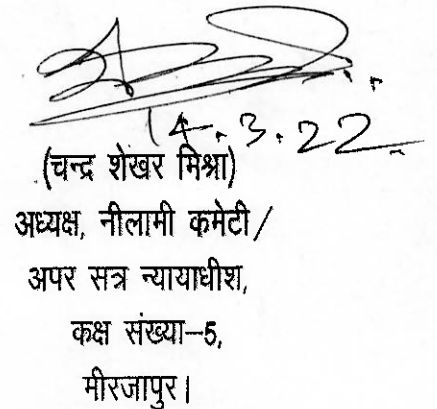 14.3.22
(चन्द्र शेखर मिश्रा)
अध्यक्ष, नीलामी कमेटी/
अपर सत्र न्यायाधीश,
कक्ष संख्या–5,
मीरजापुर।